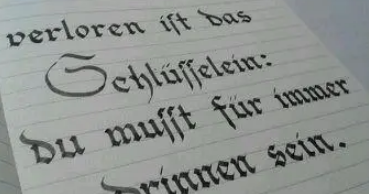 verloren iſt das
Schlüſſelein:
Du muſſt für immer
drinnen sein.